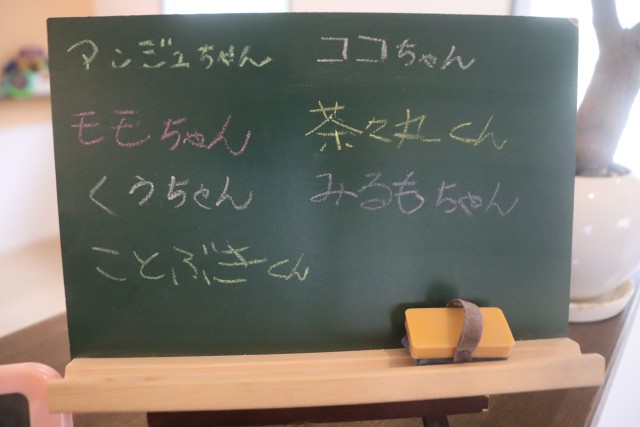 マンジュちゃん ココちゃん
モモちゃん 茶々丸くん
くうちゃん みるもちゃん
ことぶきくん